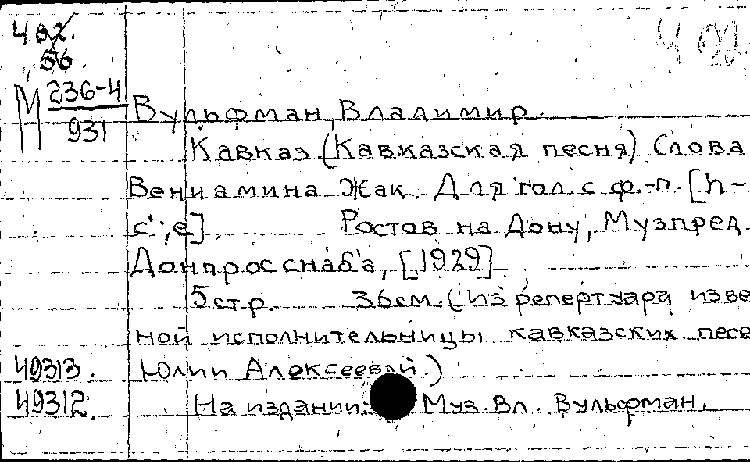 402.
56
М 236-4
931
Вульфман, Владимир.
Кавказ (Кавказская песня) Слова
Вениамина Жак. Для гол. с ф.-п. [h-
c', e]. Ростов на Дону, Музпред.
Донпросснаба, [1929]
5 стр. 36 см. (Из репертуара изве
ной исполнительницы кавказских песе
49313. Юлии Алексеевой.)
49312. На издании: Муз. Вл. Вульфман.